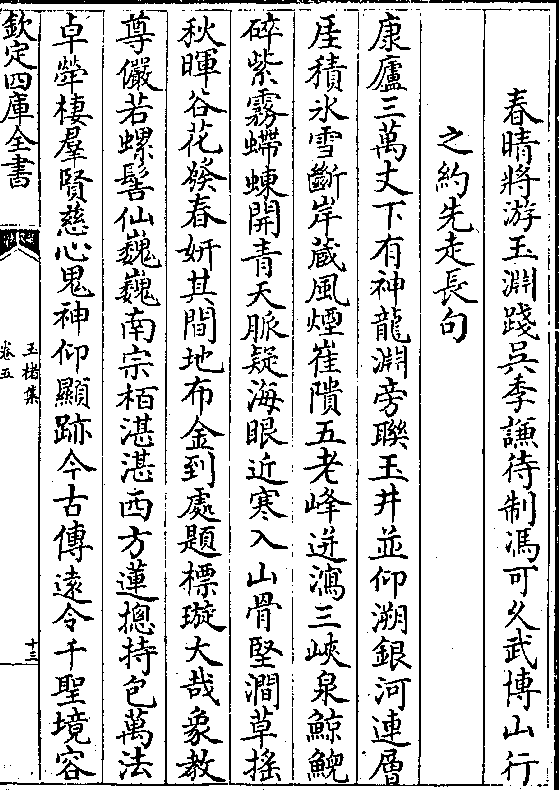 春晴將游玉淵踐吳季謙待制馮可久武博山行
之約先走長句
康廬三萬丈下有神龍淵旁聯玉井並仰溯銀河連層
厓積氷雪斷岸蔵風煙崔隤五老峰迸瀉三峽泉鯨鯢
碎紫霧螮蝀開青天脈疑海眼近寒入山骨堅澗草搖
秋暉谷花發春妍其間地布金到處題標璇大哉象教
尊儼若螺髻仙巍巍南宗栢湛湛西方蓮摠持包萬法
卓犖棲羣賢慈心鬼神仰顯跡今古傳遠令千聖境容
欽定四庫全書
玉楮集
卷五
十三